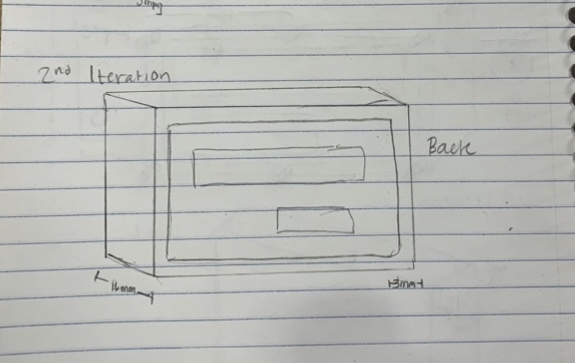 3mm
2nd Iteration
Back
16mm
3mm